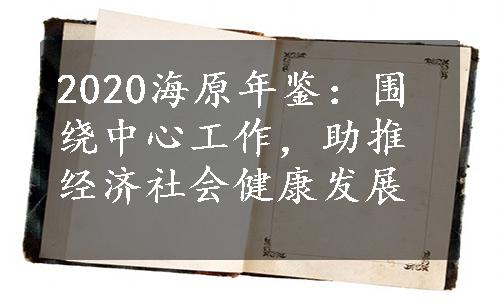 2020海原年鉴：围
绕中心工作，助推
经济社会健康发展